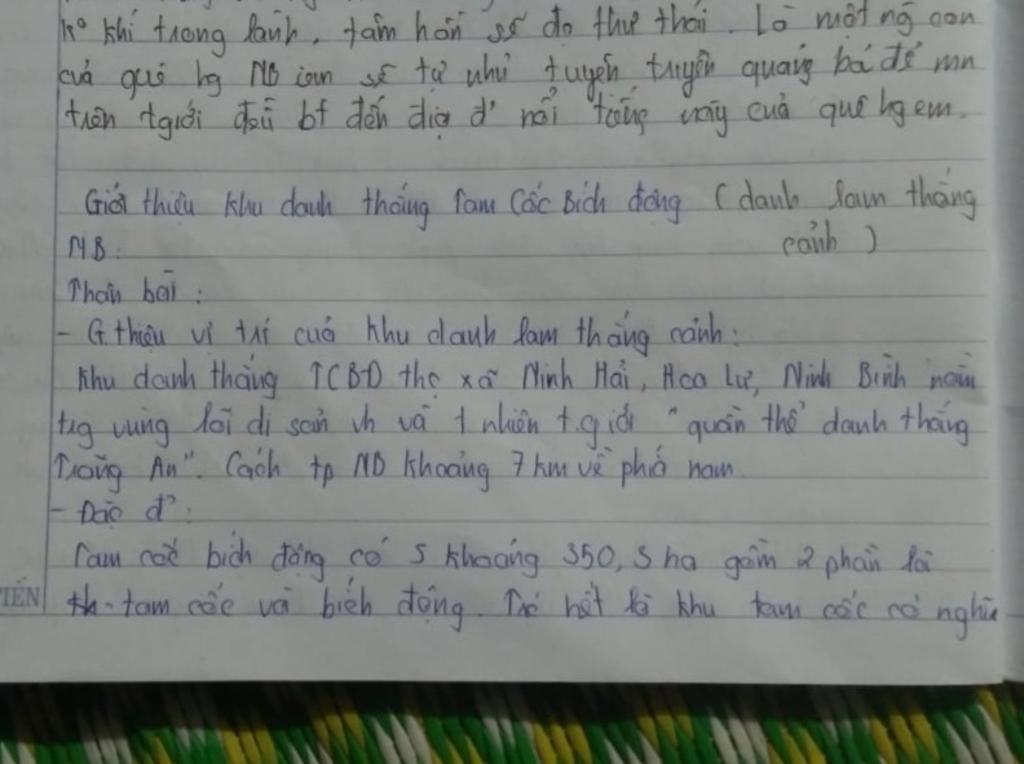 kº khí trong lành, tâm hồn sẽ đc thư thái. Là một ng con
của quê hg NB iem sẽ tự nhủ tuyên truyền quảng bá để mn
trên tgiới đều bt đến địa đ' nổi tiếng này của quê hg em.
Giới thiệu khu danh thắng Tam Cốc Bích động ( danh lam thắng
cảnh )
MB:
Thân bài:
- G.thiệu vị trí của khu danh lam thắng cảnh:
Khu danh thắng TCBĐ thc xã Ninh Hải, Hoa Lư, Ninh Bình nằm
trg vùng lõi di sản vh và t nhiên t.giới "quần thể danh thắng
Tràng An". Cách tp NB khoảng 7 km về phía nam.
- Đặc đ':
Tam cốc bích động có S khoảng 350,3 ha gồm 2 phần là
tam cốc và bích động. Trc hết là khu tam cốc có nghĩa
TIẾN